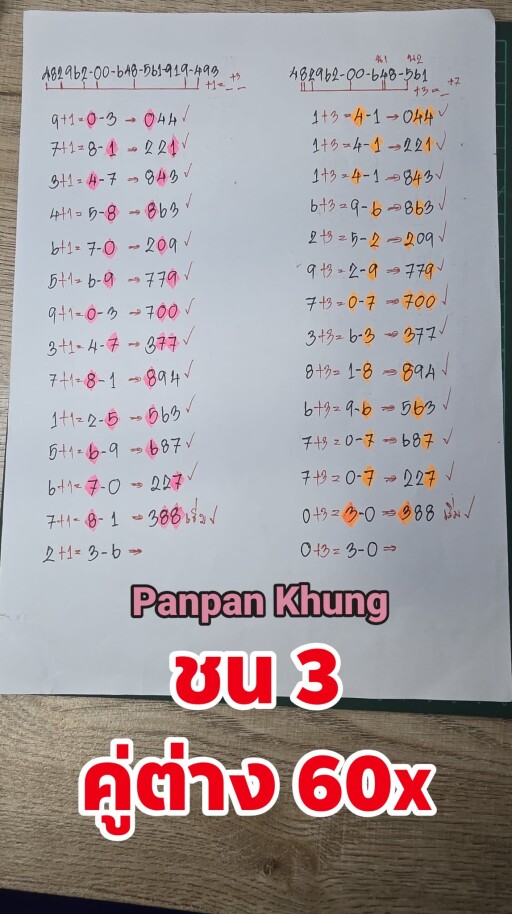 482962-00-648-561-919-493
+1=_ +3_
9+1=0-3 → 044 ✓
7+1=8-1 → 221 ✓
3+1=4-7 → 843 ✓
4+1=5-8 → 863 ✓
6+1=7-0 → 209 ✓
5+1=6-9 → 779 ✓
9+1=0-3 → 700 ✓
3+1=4-7 → 377 ✓
7+1=8-1 → 894 ✓
1+1=2-5 → 563 ✓
5+1=6-9 → 687 ✓
6+1=7-0 → 227 ✓
7+1=8-1 → 388 เริ่ม ✓
2+1=3-6 →
น1 น2
482962-00-648-561
+3=_ +7_
1+3=4-1 → 044 ✓
1+3=4-1 → 221 ✓
1+3=4-1 → 843 ✓
6+3=9-6 → 863 ✓
2+3=5-2 → 209 ✓
9+3=2-9 → 779 ✓
7+3=0-7 → 700 ✓
3+3=6-3 → 377 ✓
8+3=1-8 → 894 ✓
6+3=9-6 → 563 ✓
7+3=0-7 → 687 ✓
7+3=0-7 → 227 ✓
0+3=3-0 → 388 เริ่ม ✓
0+3=3-0 →
Panpan Khung
ชน 3
คู่ต่าง 60x